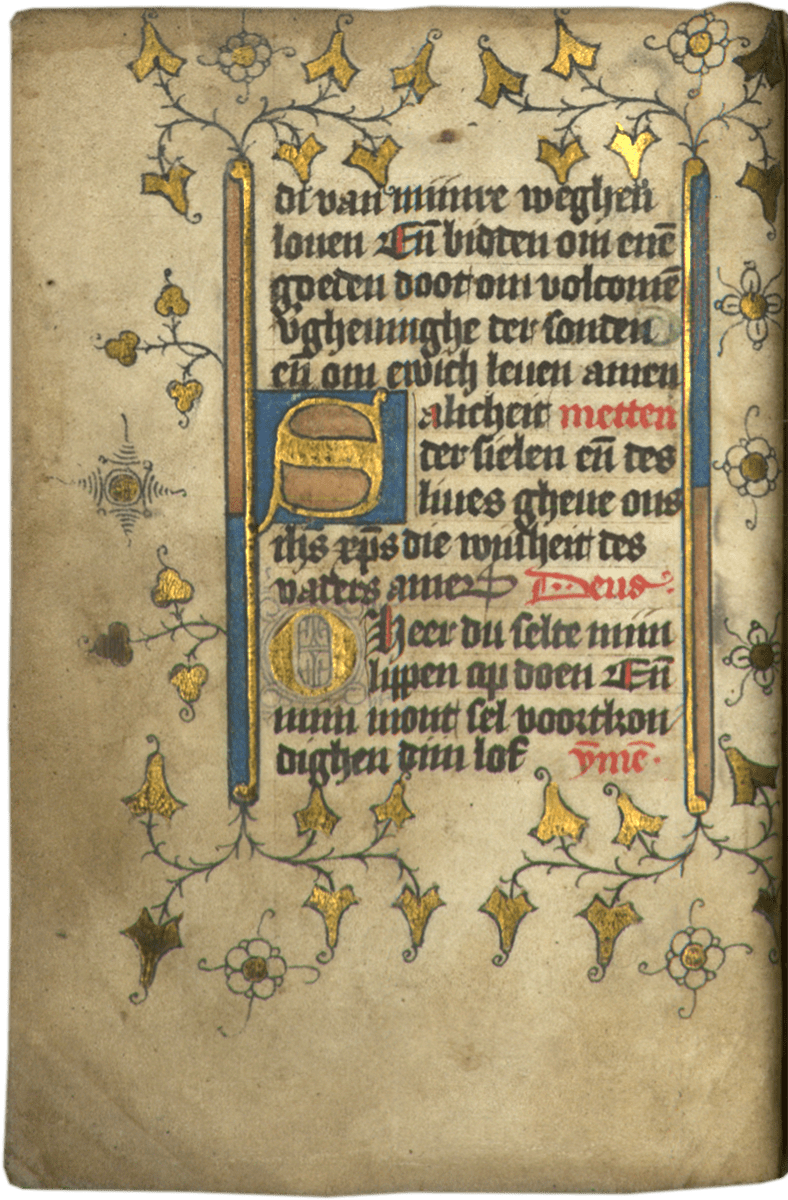 di van minnre weghen
louen En̄ bidden om enē
goeden doot om volcomē
v̄gheuinghe der sonden
en̄ om ewich leuen amen
Salicheit metten
der sielen en̄ des
liues gheue ons
ihs xp̄s die wijsheit des
vaders amen Deus
O Heer du selte mijn
lippen op doen En̄
mijn mont sel voortkon
dighen dijn lof ym̄e